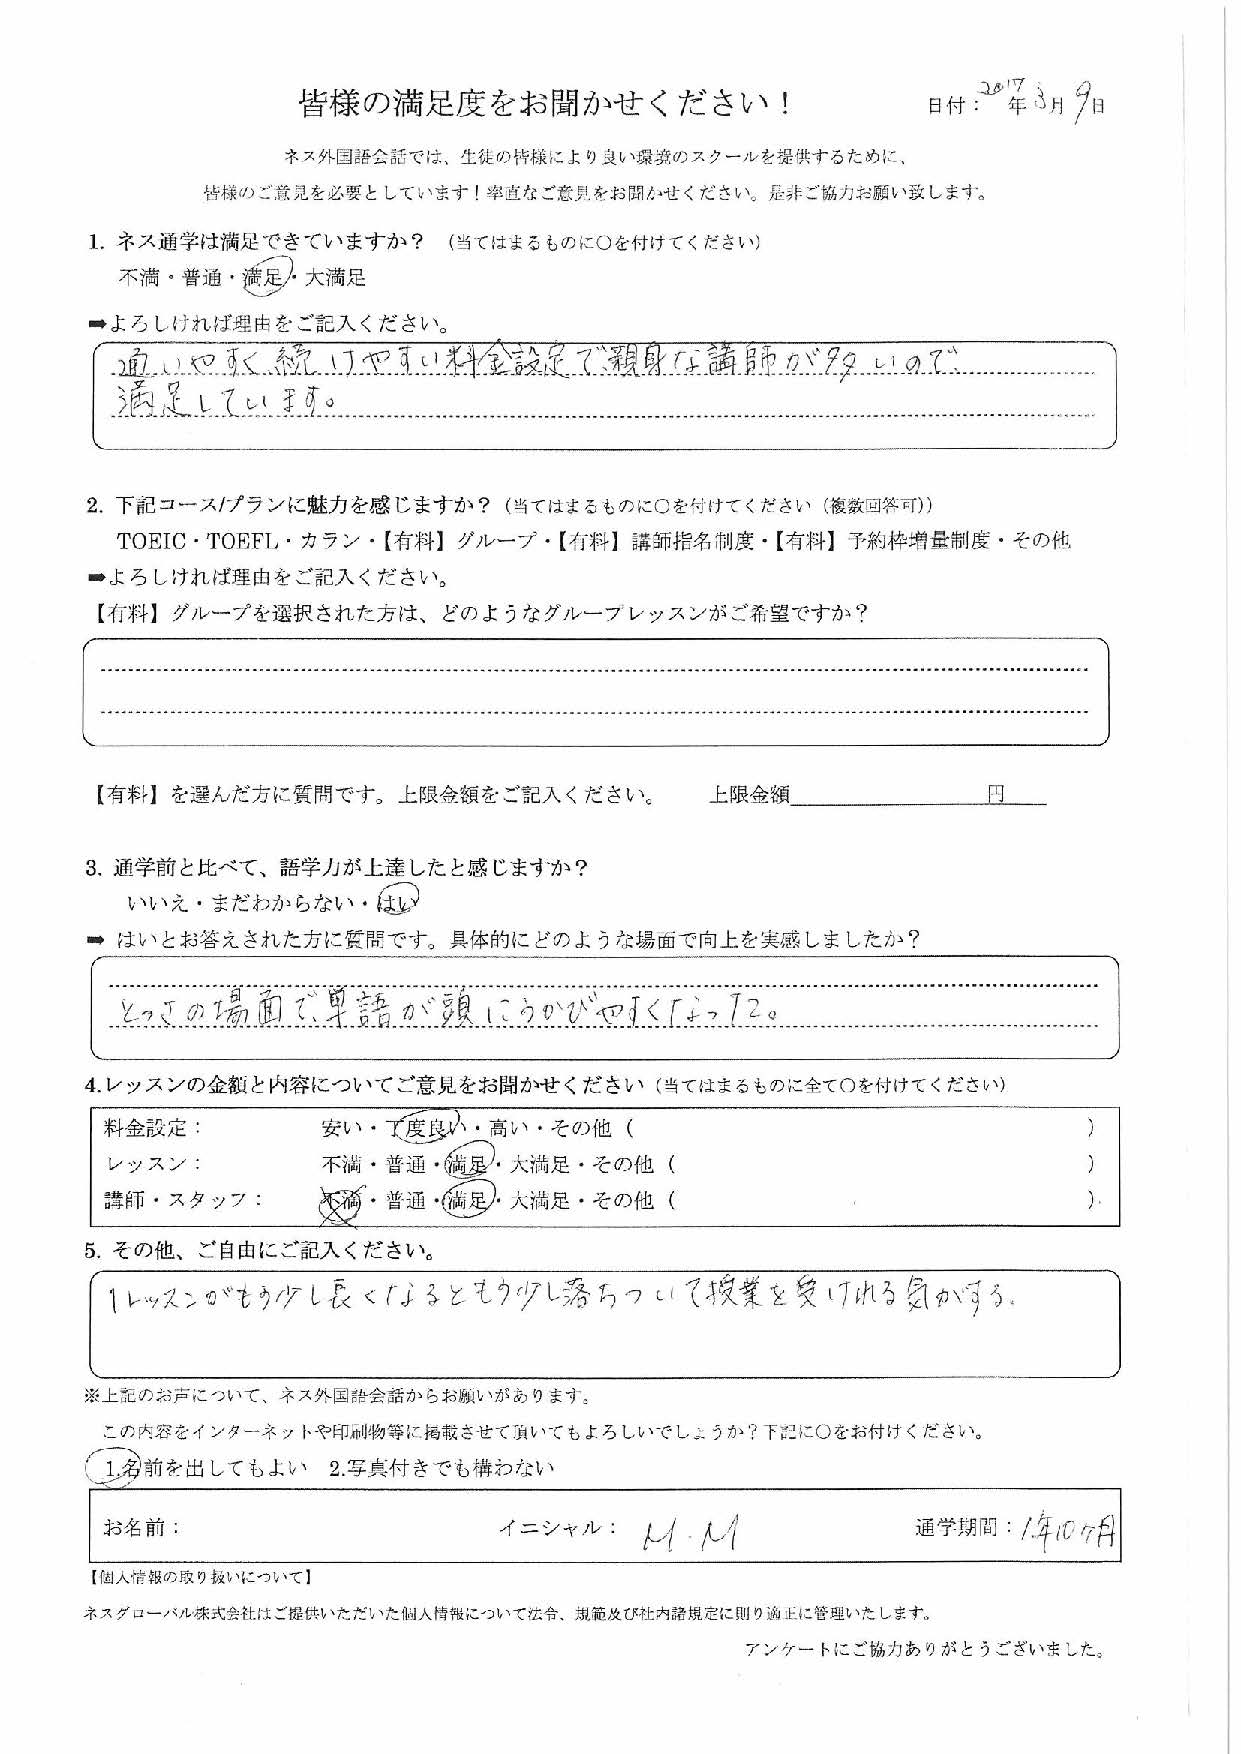 皆様の満足度をお聞かせください！
日付：2017年3月9日
ネス外国語会話では、生徒の皆様により良い環境のスクールを提供するために、
皆様のご意見を必要としています！率直なご意見をお聞かせください。是非ご協力お願い致します。
1. ネス通学は満足できていますか？ （当てはまるものに〇を付けてください）
不満・普通・満足・大満足
➡よろしければ理由をご記入ください。
通いやすく続けやすい料金設定で、親身な講師が多いので、
満足しています。
2. 下記コース/プランに魅力を感じますか？（当てはまるものに〇を付けてください（複数回答可））
TOEIC・TOEFL・カラン・【有料】グループ・【有料】講師指名制度・【有料】予約枠増量制度・その他
➡よろしければ理由をご記入ください。
【有料】グループを選択された方は、どのようなグループレッスンがご希望ですか？
【有料】を選んだ方に質問です。上限金額をご記入ください。 上限金額 円
3. 通学前と比べて、語学力が上達したと感じますか？
いいえ・まだわからない・はい
➡ はいとお答えされた方に質問です。具体的にどのような場面で向上を実感しましたか？
とっさの場面で、単語が頭にうかびやすくなった。
4.レッスンの金額と内容についてご意見をお聞かせください（当てはまるものに全て〇を付けてください）
料金設定： 安い・丁度良い・高い・その他（ ）
レッスン： 不満・普通・満足・大満足・その他（ ）
講師・スタッフ： 不満・普通・満足・大満足・その他（ ）
5. その他、ご自由にご記入ください。
1レッスンがもう少し長くなるともう少し落ちついて授業を受けれる気がする。
※上記のお声について、ネス外国語会話からお願いがあります。
この内容をインターネットや印刷物等に掲載させて頂いてもよろしいでしょうか？下記に〇をお付けください。
1.名前を出してもよい 2.写真付きでも構わない
お名前： イニシャル： M.M 通学期間：1年10ヶ月
【個人情報の取り扱いについて】
ネスグローバル株式会社はご提供いただいた個人情報について法令、規範及び社内諸規定に則り適正に管理いたします。
アンケートにご協力ありがとうございました。